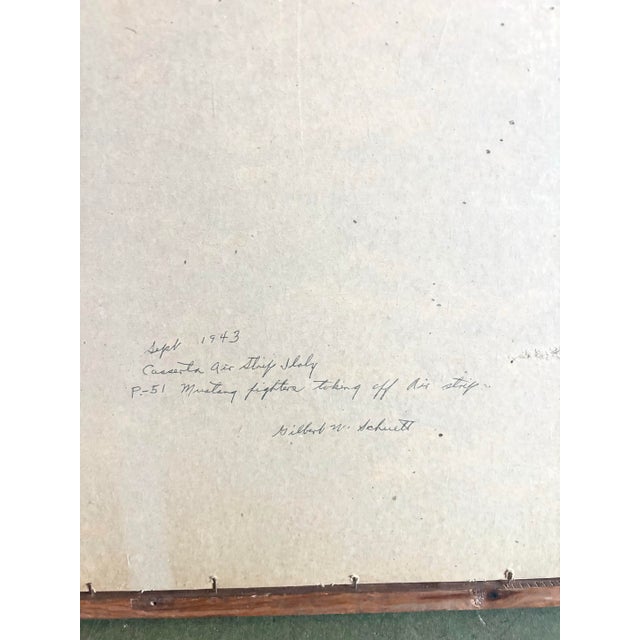 Sept 1943
Casserta Air Strip Italy
P-51 Mustang fighters taking off Air strip.
Gilbert W. Schuett